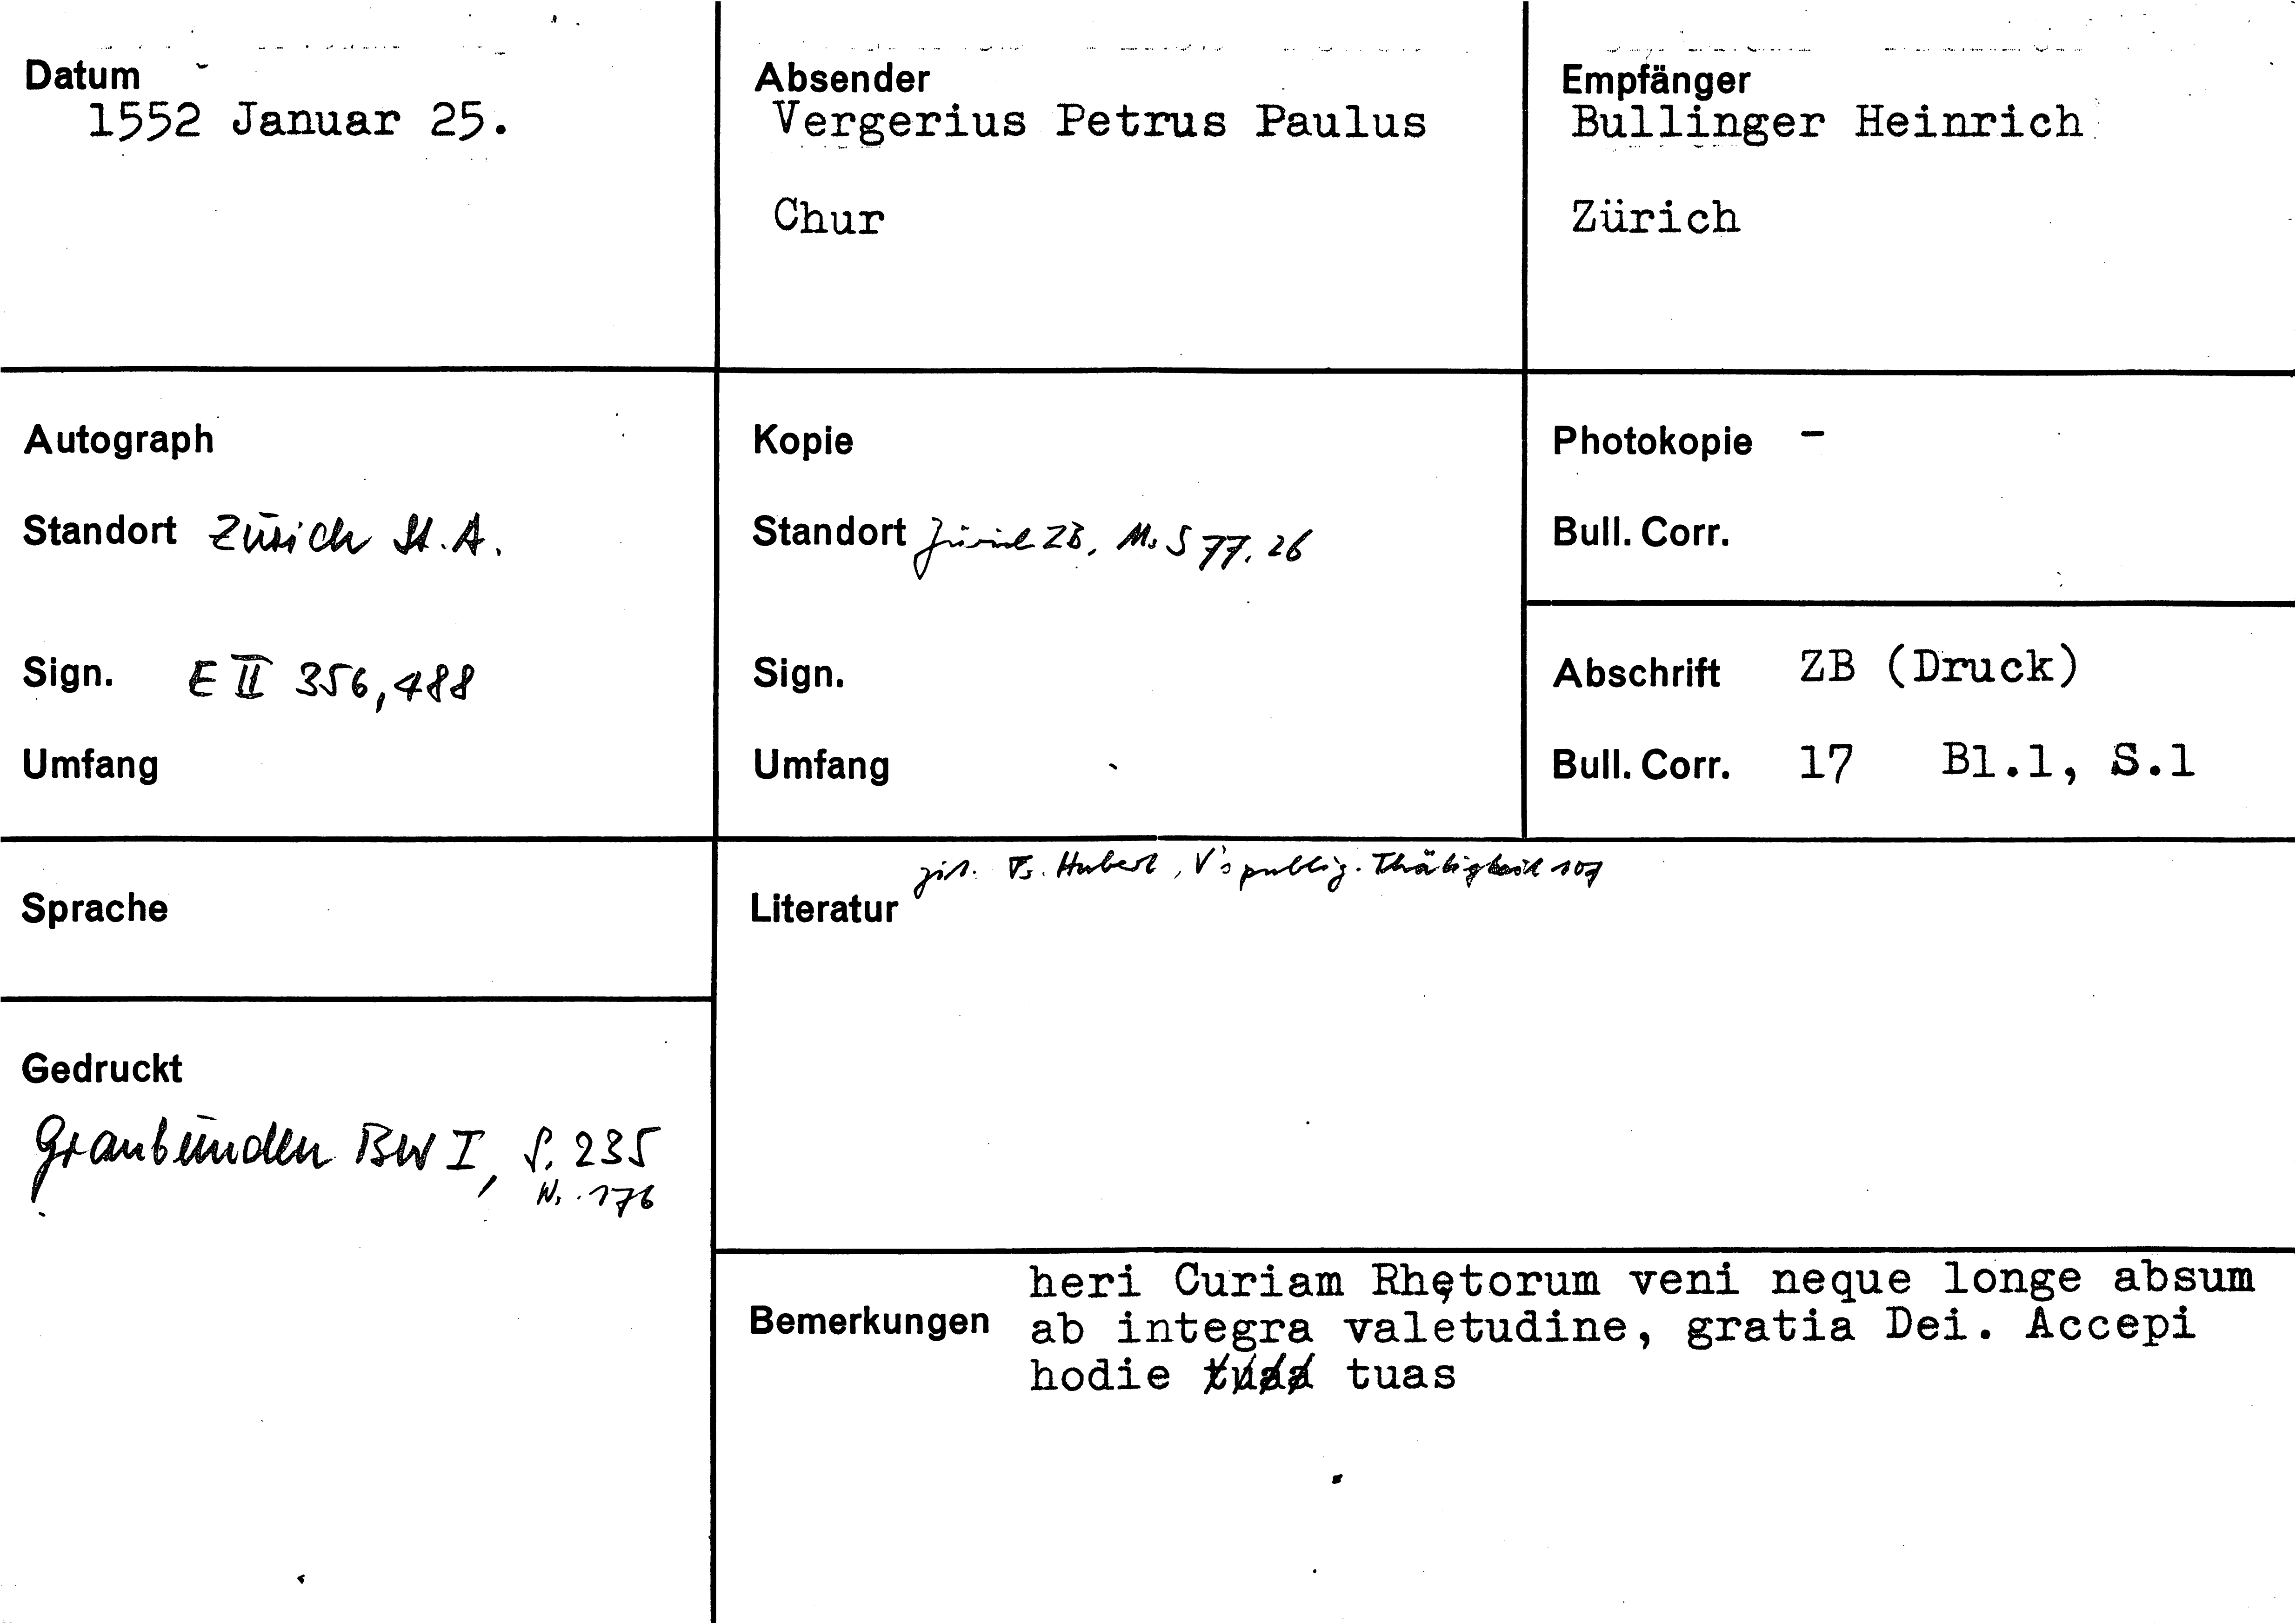 Datum
1552 Januar 25.
Absender
Vergerius Petrus Paulus
Chur
Empfänger
Bullinger Heinrich
Zürich
Autograph
Standort Zürich St. A.
Sign. E II 356, 488
Umfang
Kopie
Standort Zürich ZB, Ms S 77. 26
Sign.
Umfang
Photokopie -
Bull. Corr.
Abschrift ZB (Druck)
Bull. Corr. 17 Bl.1, S.1
Sprache
Gedruckt
Graubünden BW I, S. 235
Nr. 176
zit. Hubert, V's publiz. Thätigkeit 107
Literatur
Bemerkungen
heri Curiam Rhętorum veni neque longe absum
ab integra valetudine, gratia Dei. Accepi
hodie tuas